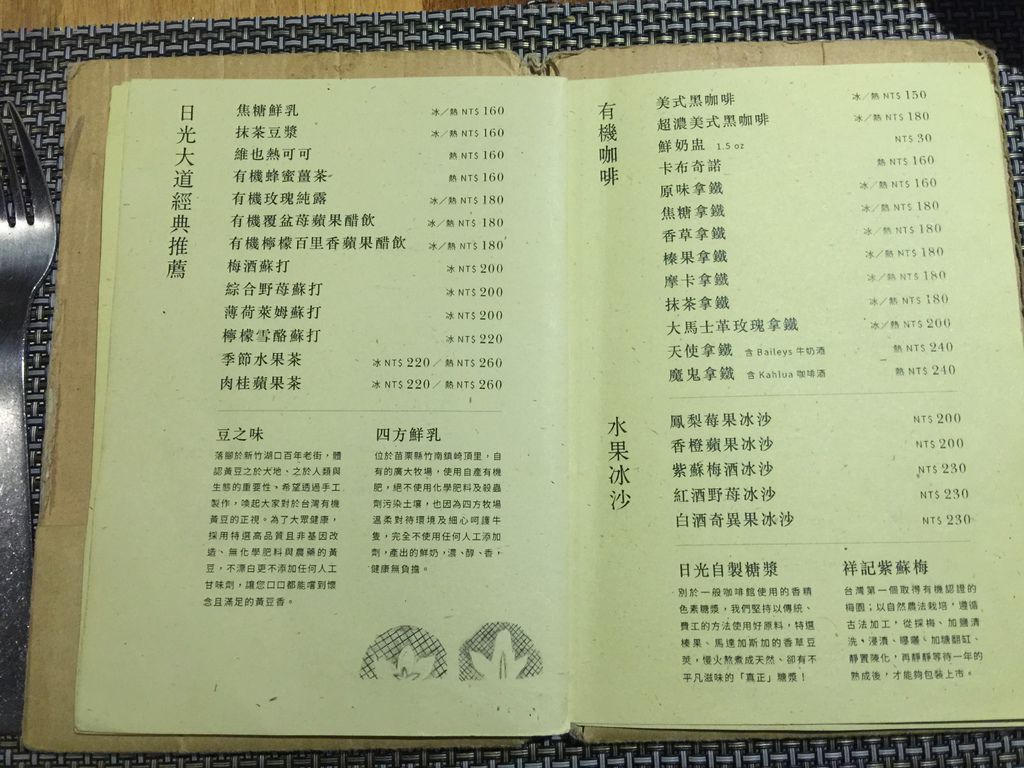 日光大道經典推薦
焦糖鮮乳 冰／熱 NT$ 160
抹茶豆漿 冰／熱 NT$ 160
維也熱可可 熱 NT$ 160
有機蜂蜜薑茶 熱 NT$ 160
有機玫瑰純露 冰／熱 NT$ 180
有機覆盆莓蘋果醋飲 冰／熱 NT$ 180
有機檸檬百里香蘋果醋飲 冰／熱 NT$ 180
梅酒蘇打 冰 NT$ 200
綜合野莓蘇打 冰 NT$ 200
薄荷萊姆蘇打 冰 NT$ 200
檸檬雪酪蘇打 冰 NT$ 220
季節水果茶 冰 NT$ 220／熱 NT$ 260
肉桂蘋果茶 冰 NT$ 220／熱 NT$ 260
豆之味
落腳於新竹湖口百年老街，體
認黃豆之於大地、之於人類與
生態的重要性、希望透過手工
製作，喚起大家對於台灣有機
黃豆的正視。為了大眾健康，
採用特選高品質且非基因改
造、無化學肥料與農藥的黃
豆，不漂白更不添加任何人工
甘味劑，讓您口口都能嚐到懷
念且滿足的黃豆香。
四方鮮乳
位於苗栗縣竹南鎮崎頂里，自
有的廣大牧場，使用自產有機
肥，絕不使用化學肥料及殺蟲
劑污染土壤，也因為四方牧場
溫柔對待環境及細心呵護牛
隻，完全不使用任何人工添加
劑，產出的鮮奶，濃、醇、香，
健康無負擔。
有機咖啡
美式黑咖啡 冰／熱 NT$ 150
超濃美式黑咖啡 冰／熱 NT$ 180
鮮奶盅 1.5 oz NT$ 30
卡布奇諾 熱 NT$ 160
原味拿鐵 冰／熱 NT$ 160
焦糖拿鐵 冰／熱 NT$ 180
香草拿鐵 冰／熱 NT$ 180
榛果拿鐵 冰／熱 NT$ 180
摩卡拿鐵 冰／熱 NT$ 180
抹茶拿鐵 冰／熱 NT$ 180
大馬士革玫瑰拿鐵 冰／熱 NT$ 200
天使拿鐵 含 Baileys 牛奶酒 熱 NT$ 240
魔鬼拿鐵 含 Kahlua 咖啡酒 熱 NT$ 240
水果冰沙
鳳梨莓果冰沙 NT$ 200
香橙蘋果冰沙 NT$ 200
紫蘇梅酒冰沙 NT$ 230
紅酒野莓冰沙 NT$ 230
白酒奇異果冰沙 NT$ 230
日光自製糖漿
別於一般咖啡館使用的香精
色素糖漿，我們堅持以傳統、
費工的方法使用好原料，特選
榛果、馬達加斯加的香草豆
莢，慢火熬煮成天然、卻有不
平凡滋味的「真正」糖漿！
祥記紫蘇梅
台灣第一個取得有機認證的
梅園；以自然農法栽培，遵循
古法加工，從採梅、加鹽清
洗、浸漬、曝曬、加塘翻缸、
靜置陳化，再靜靜等待一年的
熟成後，才能夠包裝上市。